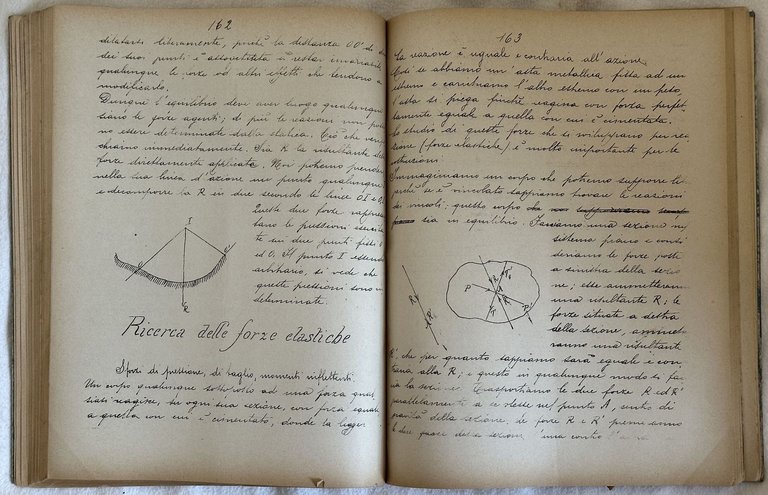 162
dilatarsi liberamente, perchè la distanza OO' di
dei suoi punti è assoggettata a restar invariabile
qualunque le forze od altri effetti che tendono a
modificarlo.
Dunque l'equilibrio deve aver luogo qualunque
siano le forze agenti; di più le reazioni non pos
no essere determinate dalla statica. Ciò che ver
chiamo immediatamente. Sia R la risultante del
forze direttamente applicate. Noi potremo prendere
nella sua linea d'azione un punto qualunque
e decomporre la R in due secondo le linee OI e O
Queste due forze rappre
tano le pressioni eserci
te sui due punti fissi
ed O. Il punto I essendo
arbitrario, si vede che
queste pressioni sono in
determinate.
I
R
Ricerca delle forze elastiche
Sforzi di pressione, di taglio, momenti inflettenti.
Un corpo qualunque sottoposto ad una forza qual
siasi reagisce, in ogni sua sezione, con forza eguale
a quella con cui è cimentato, donde la legge:
163
la reazione è uguale e contraria all'azione.
Così se abbiamo un'asta metallica fissa ad un
estremo e carichiamo l'altro estremo con un peso,
l'asta si piega finchè reagisce con forza perfet
tamente eguale a quella con cui è cimentata.
Lo studio di queste forze che si sviluppano per rea
zione (forze elastiche) è molto importante per le
costruzioni.
Immaginiamo un corpo che potremo supporre li
perchè se è vincolato sappiamo trovare le reazioni
dei vincoli; questo corpo
sia in equilibrio. Facciamo una sezione nel
sistema piano e consi
deriamo le forze poste
a sinistra della sezio
ne; esse ammetteranno
una risultante R; le
forze situate a destra
della sezione, ammet
ranno una risultante
R', che per quanto sappiamo sarà eguale e con
traria alla R; e questo in qualunque modo si fac
cia la sezione. Trasportiamo le due forze R ed R'
parallelamente a se stesse nel punto A, centro di
gravità della sezione, le forze R e R' premeranno
le due facce della sezione una contro l'altra